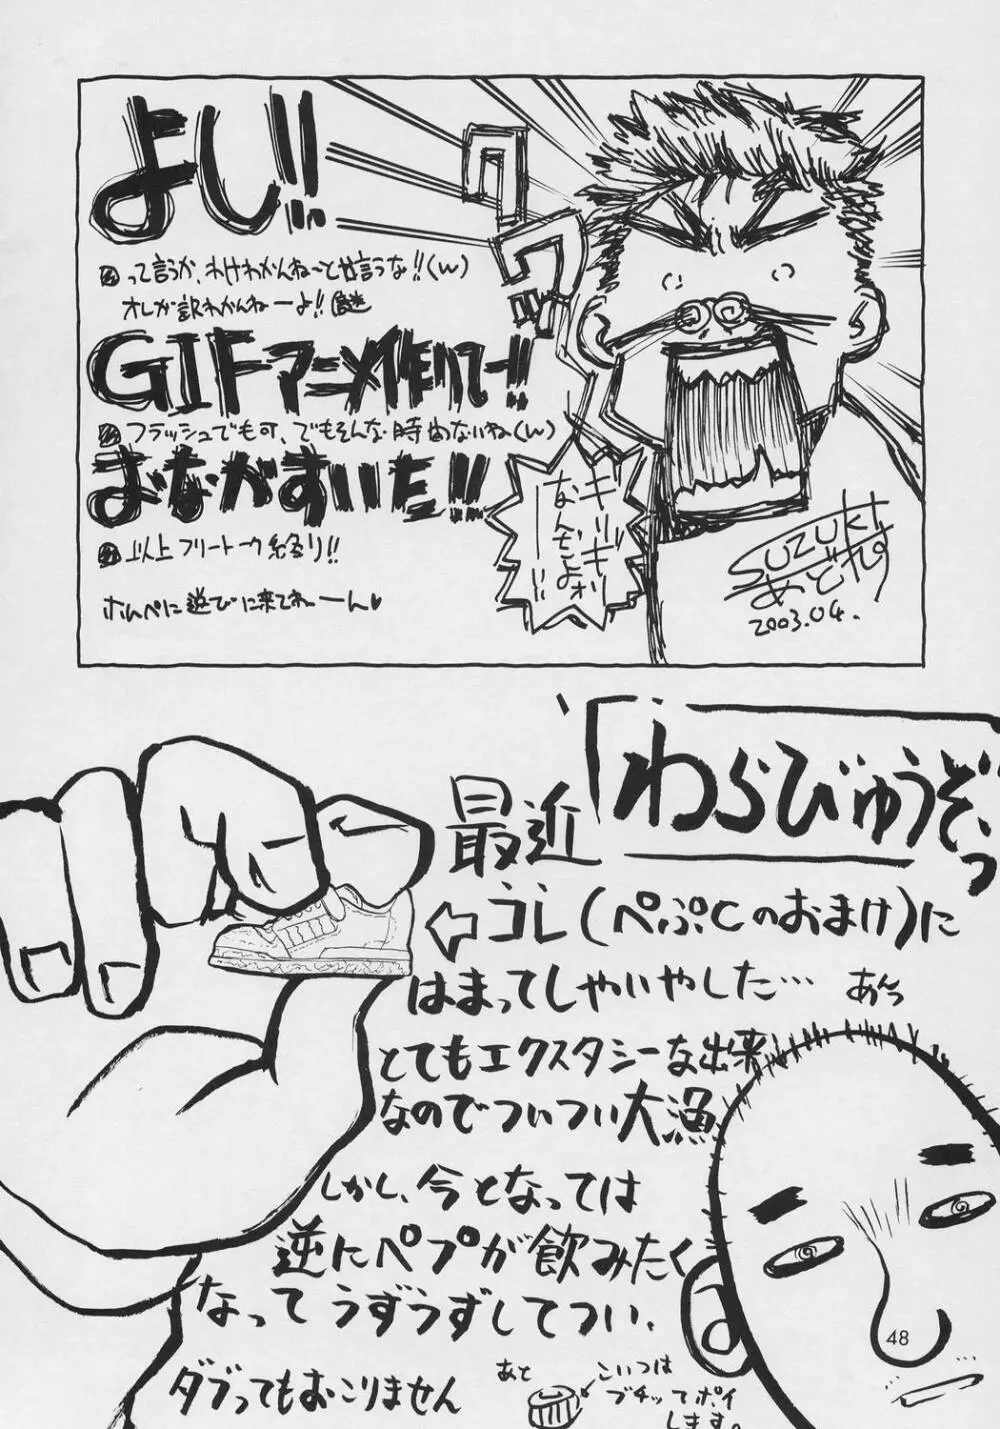 よし!!
って言うか、わけわかんねーとは言うな!!(w)
オレが訳わかんねーよ!! 謎
GIFアニメ作りてー!!
フラッシュでも可、でもそんな時間ないね(w)
おなかすいたー!!!
以上フリートーク終り!!
ホムペに遊びに来てねーーん♥
ワワワ!!
キーッ
なんだよォー!!
SUZUKI
あどれす
2003.04.
「わらびゅうぞっ
最近
⇦コレ(ぺぷCのおまけ)に
はまってしやいやした…
あんっ
とてもエクスタシーな出来
なのでついつい大漁
しかし、今となっては
逆にペプが飲みたく
なってうずうずしてつい、
ダブってもおこりません
あと
こいつは
ブチッてポイ
します。
48